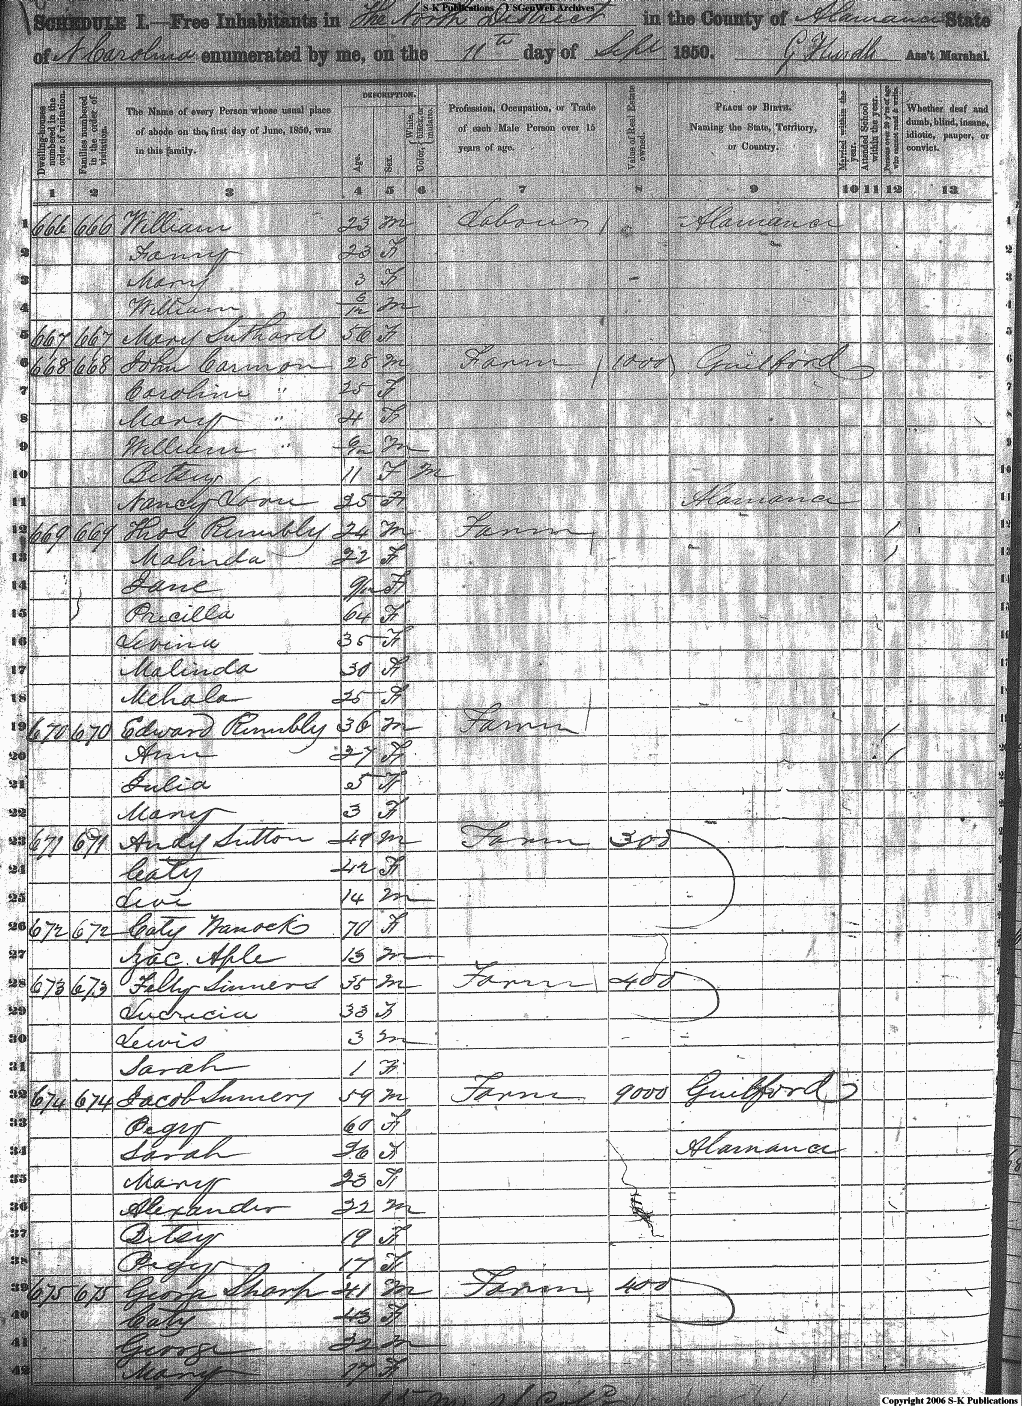 S-K Publications - USGenWeb Archives
SCHEDULE I.—Free Inhabitants in The North District in the County of Alamance State
of N Carolina enumerated by me, on the 11th day of Sept 1850. G Hurdle Ass't Marshal.
Dwelling-houses numbered in the order of visitation.
Families numbered in the order of visitation.
The Name of every Person whose usual place of abode on the first day of June, 1850, was in this family.
DESCRIPTION.
Age.
Sex.
Color, White, black, or mulatto.
Profession, Occupation, or Trade of each Male Person over 15 years of age.
Value of Real Estate owned.
PLACE OF BIRTH. Naming the State, Territory, or Country.
Married within the year.
Attended School within the year.
Persons over 20 y'rs of age who cannot read & write.
Whether deaf and dumb, blind, insane, idiotic, pauper, or convict.
1 2 3 4 5 6 7 8 9 10 11 12 13
1 666 666 William 23 m Alamance 1
2 Fanny 23 F 2
3 Mary 3 F 3
4 William 6/12 m 4
5 667 667 Mary Suthard 56 F 5
6 668 668 John Carmon 28 m Farm 1000 Guilford 6
7 Carolin " 25 F 7
8 Mary " 4 F 8
9 William " m 9
10 Betsy 11 F M 10
11 Nancy Love 25 F Alamance 11
12 669 669 Thos Rumbly 24 m Farm / 12
13 Malinda 22 F / 13
14 Jane 9/12 F
15 Pricilla 64 F
16 Levina 35 F
17 Malinda 30 F
18 Mehala 25 F
19 670 670 Edward Rumbly 36 m Farm /
20 Ann 27 F /
21 Julia 5 F
22 Mary 3 F
23 671 671 Andy Sutton 49 m Farm 300
24 Caty 42 F
25 Levi 14 m
26 672 672 Caty 70 F
27 Zac. Aple 13 m
28 673 673 Felty Summers 35 m Farm 400
29 Lucricia 33 F
30 Lewis 3 m
31 Sarah 1 F
32 674 674 Jacob Sumers 59 m Farm 9000 Guilford
33 Pegy 60 F
34 Sarah 26 F Alamance
35 Mary 23 F
36 Alexander 22 m
37 Betsy 19 F
38 Pegy 17 F
39 675 675 George Sharp 41 m Farm 400
40 Caty 43 F
41 George 22 m
42 Mary 17 F
Copyright 2006 S-K Publications